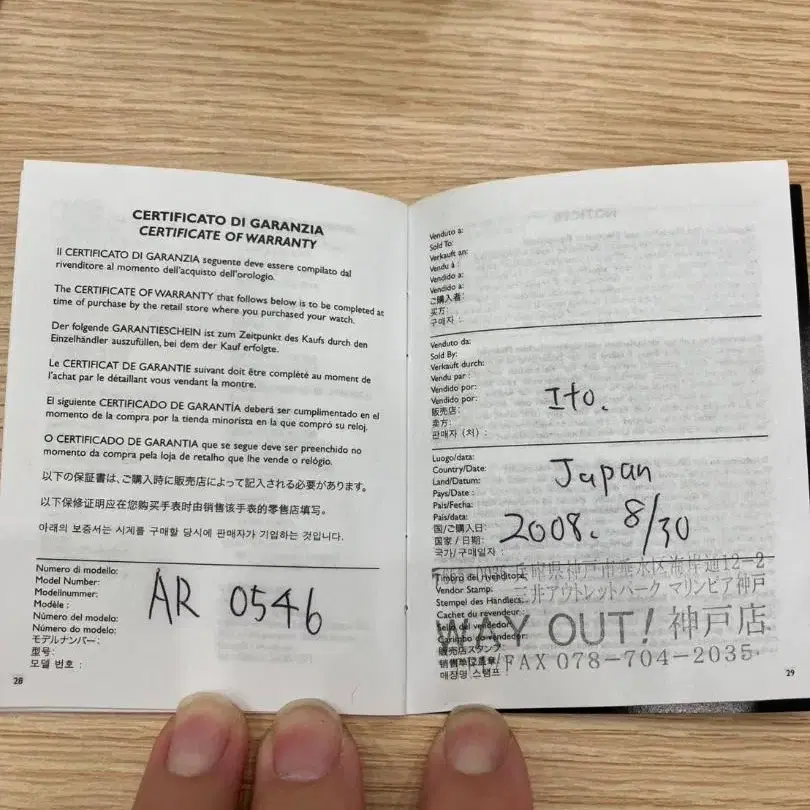 CERTIFICATO DI GARANZIA
CERTIFICATE OF WARRANTY
Il CERTIFICATO DI GARANZIA seguente deve essere compilato dal
rivenditore al momento dell'acquisto dell'orologio.
The CERTIFICATE OF WARRANTY that follows below is to be completed at
time of purchase by the retail store where you purchased your watch.
Der folgende GARANTIESCHEIN ist zum Zeitpunkt des Kaufs durch den
Einzelhändler auszufüllen, bei dem der Kauf erfolgte.
Le CERTIFICAT DE GARANTIE suivant doit être complêté au moment de
l'achat par le détaillant vous vendant la montre.
El siguiente CERTIFICADO DE GARANTÍA deberá ser cumplimentado en el
momento de la compra por la tienda minorista en la que compró su reloj.
O CERTIFICADO DE GARANTIA que se segue deve ser preenchido no
momento da compra pela loja de retalho que lhe vende o relógio.
以下の保証書は、ご購入時に販売店によって記入される必要があります。
以下保修证明应在您购买手表时由销售该手表的零售店填写。
아래의 보증서는 시계를 구매할 당시에 판매자가 기입하는 것입니다.
Numero di modello:
Model Number:
Modellnummer:
Modèle :
Número del modelo:
Número do modelo:
モデルナンバー:
型号:
모델 번호 :
AR 0546
28
Venduto a:
Sold To:
Verkauft an:
Vendu à :
Vendido a:
Vendido a:
ご購入者:
买方:
구매자 :
Venduto da:
Sold By:
Verkauft durch:
Vendu par :
Vendido por:
Vendido por:
販売店:
卖方:
판매자 (처) :
Ito.
Luogo/data:
Country/Date:
Land/Datum:
Pays/Date :
País/Fecha:
País/data:
国/ご購入日:
国家 / 日期:
국가/구매일자 :
Japan
2008. 8/30
Timbro del rivenditore:
Vendor Stamp:
Stempel des Händlers:
Cachet du revendeur :
Sello del vendedor:
Carimbo do vendedor:
販売店スタンプ:
销售单位盖章:
매장명 스탬프 :
兵庫県神戸市垂水区海岸通12-2
三井アウトレットパーク マリンピア神戸
WAY OUT! 神戸店
FAX 078-704-2035
29